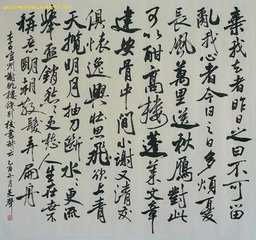 棄我去者昨日之日不可留
亂我心者今日之日多煩憂
長風萬里送秋鴈對此
可以酣高樓蓬萊文章
建安骨中間小謝又清發
俱懷逸興壯思飛欲上青
天攬明月抽刀斷水水更流
舉杯銷愁愁更愁人生在世不
稱意明朝散髮弄扁舟
李白宣州謝朓樓餞別校書叔云